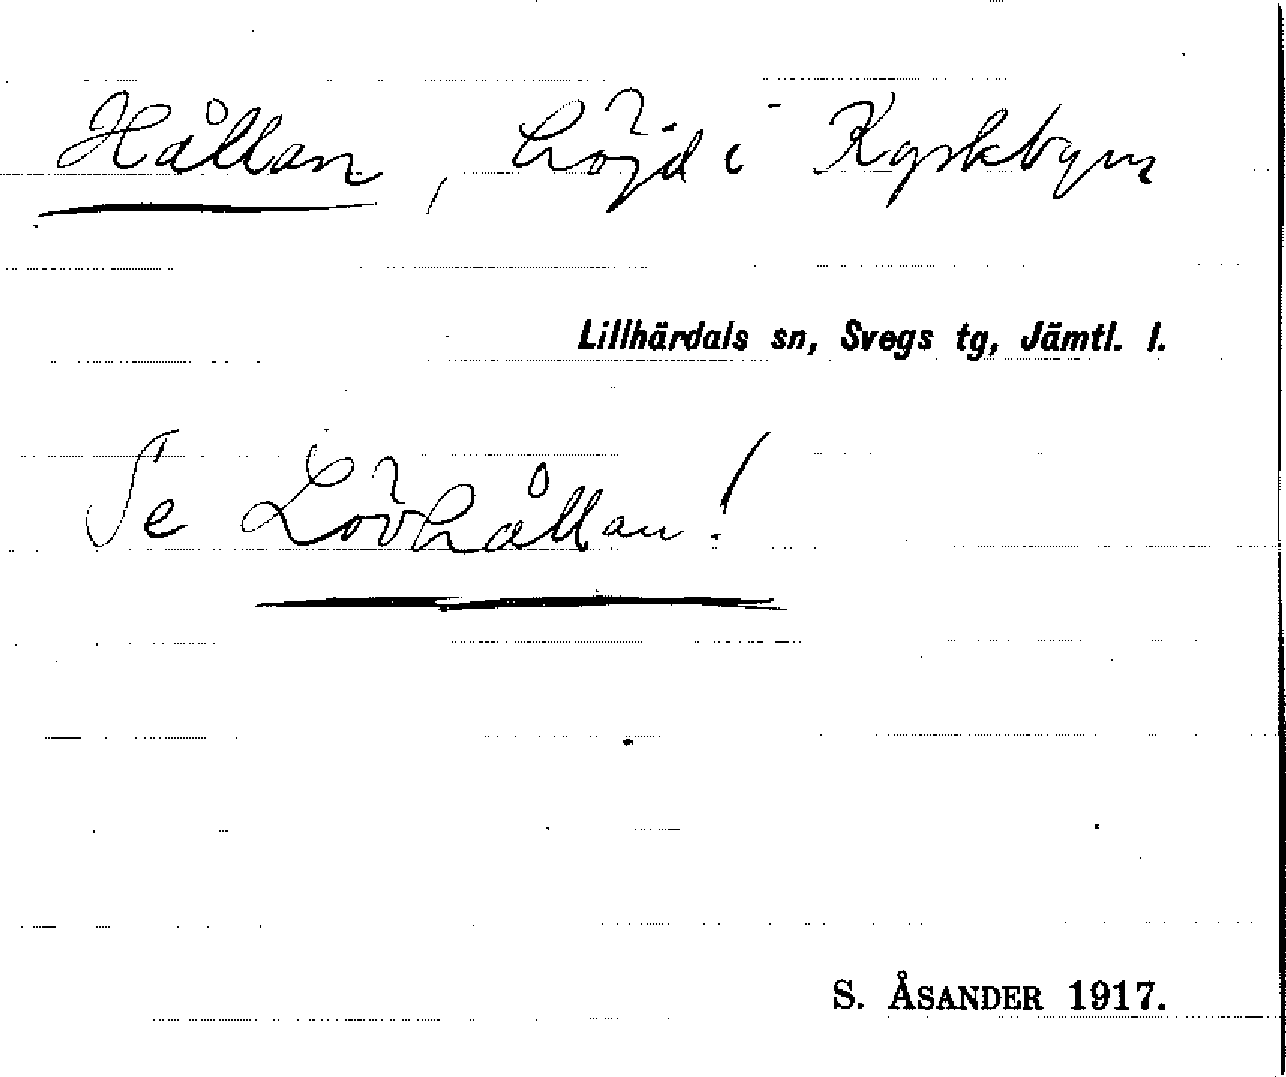 Hållan, höjd i Kyrkbyn
Lillhärdals sn, Svegs tg, Jämtl. l.
Se Lövhållan!
S. ÅSANDER 1917.